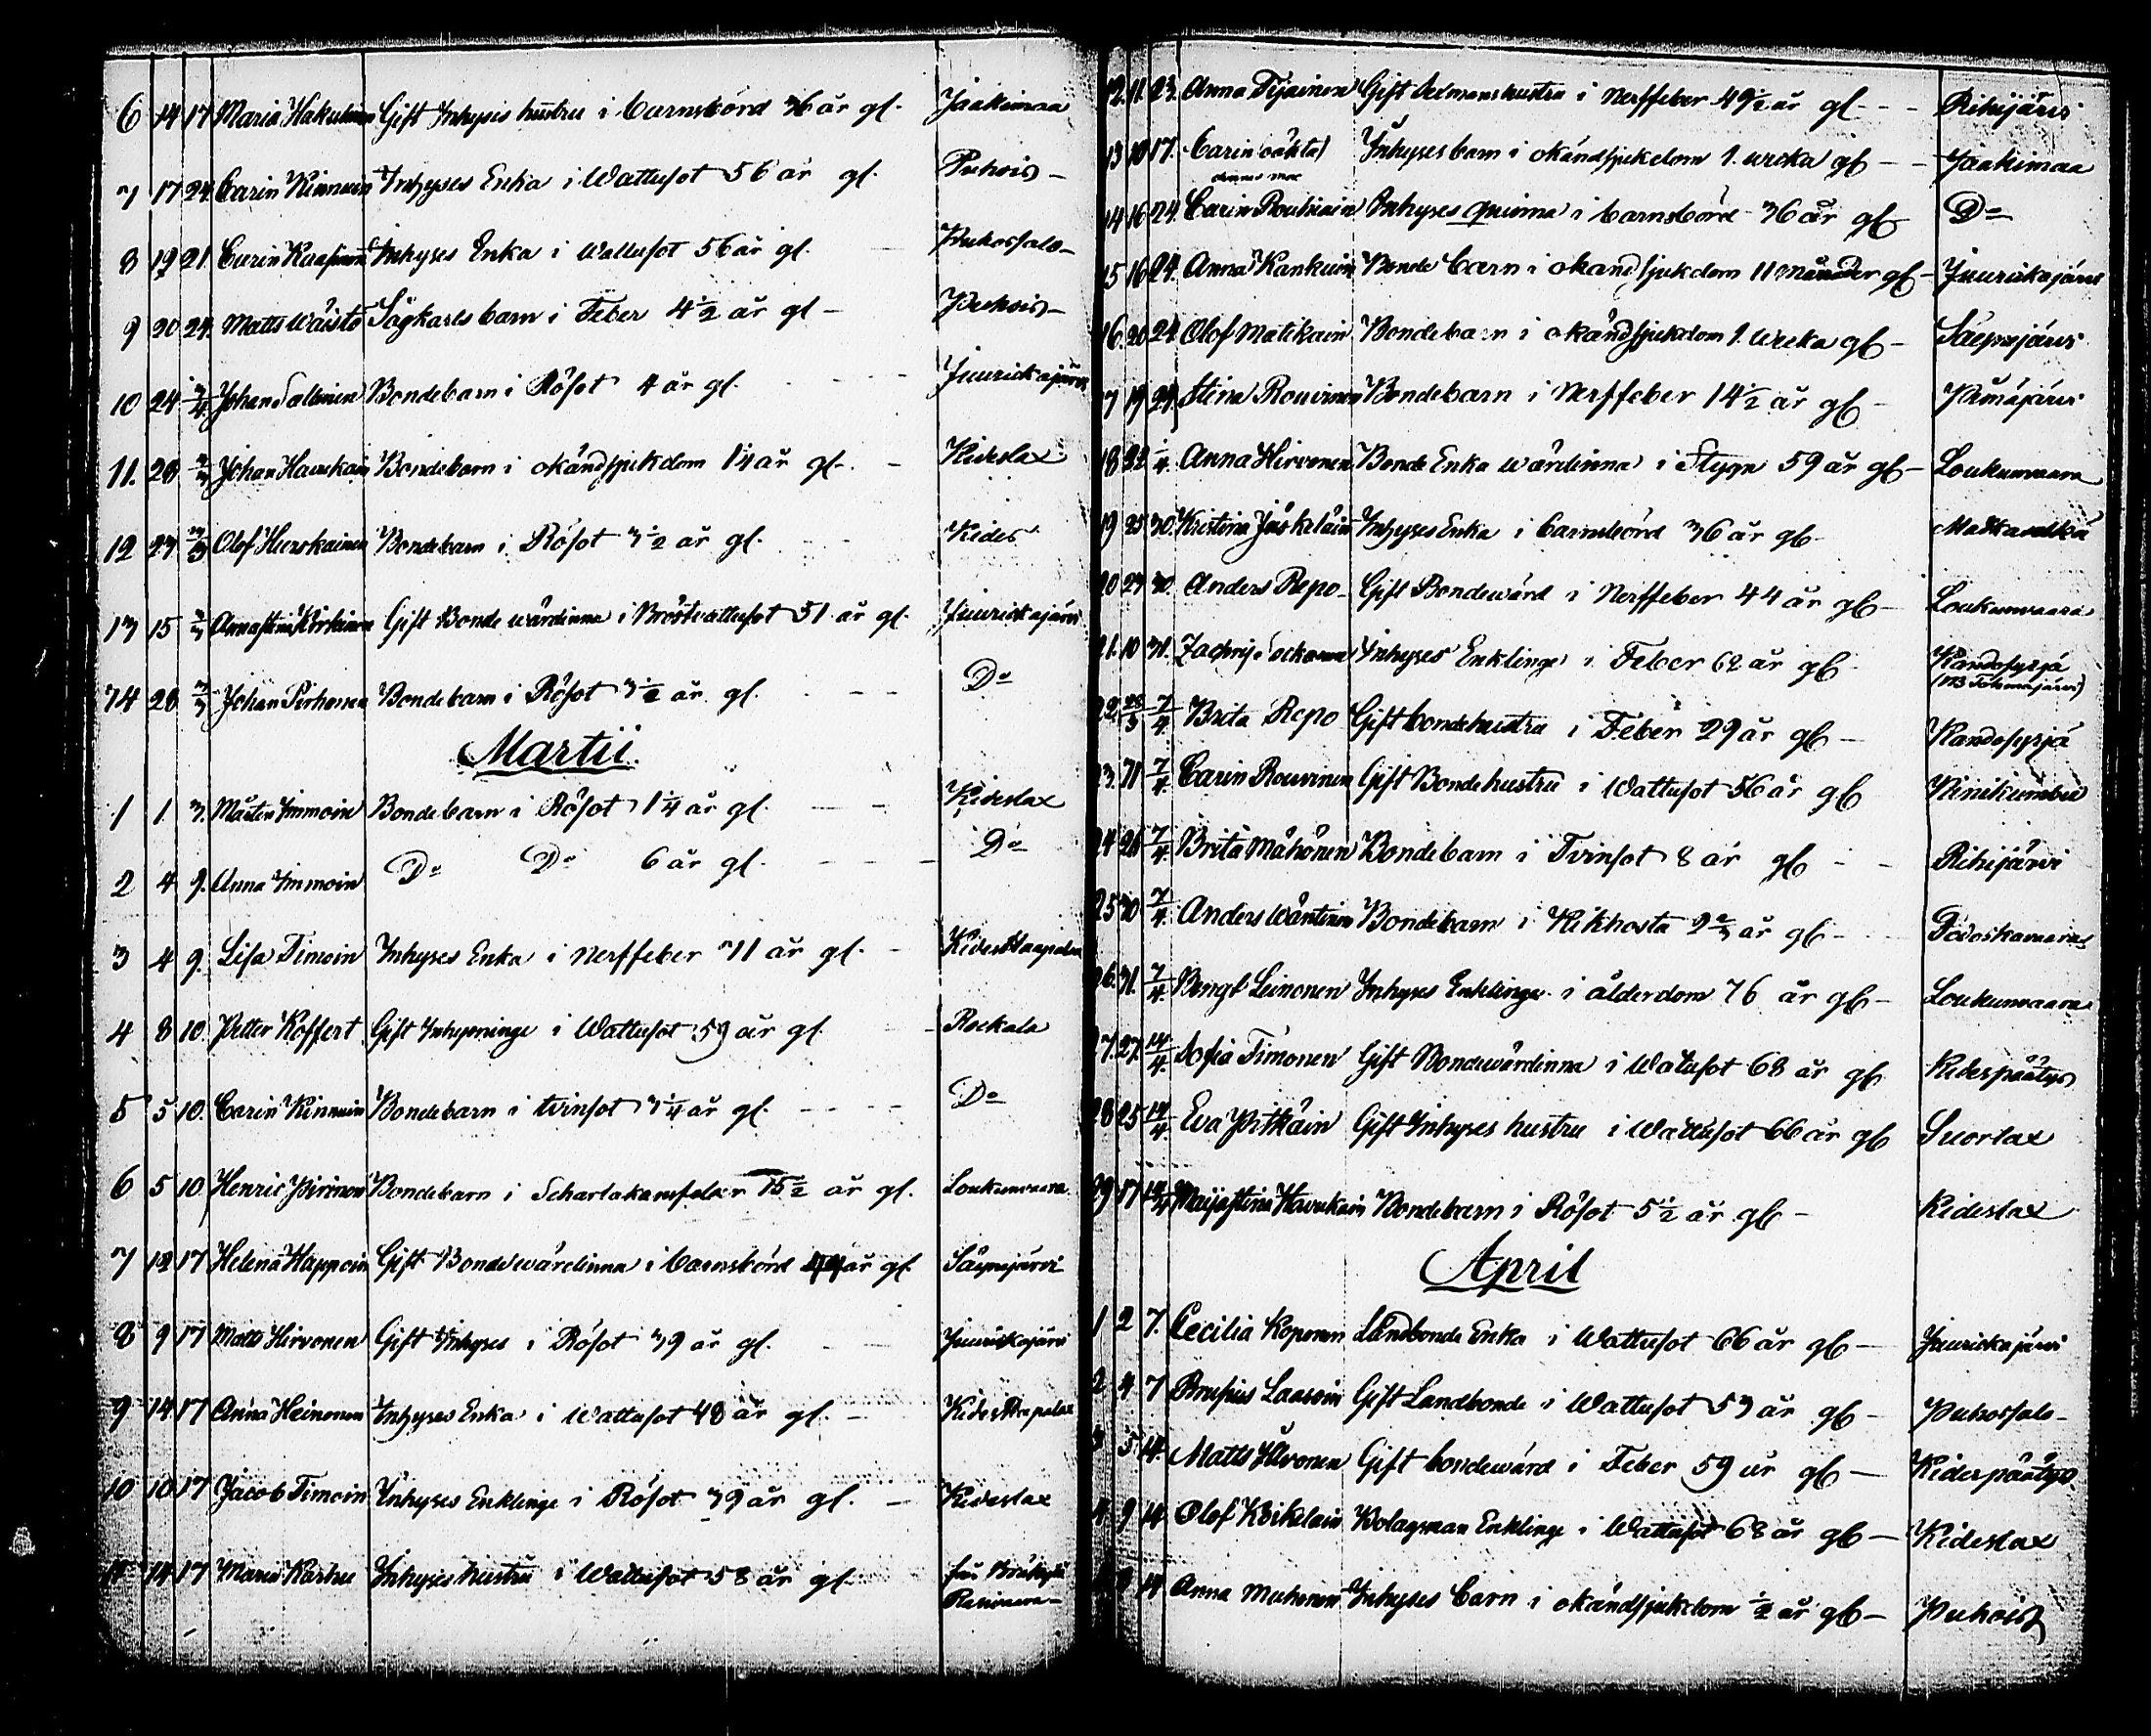 6 14 17 Maria Hakulinen Gift Inhyses hustru i barnsbörd 36 år gl. Jaakimaa
7 17 24 Carin Kinnunen Inhyses Enka i Wattusot 56 år gl. Puhois
8 19 21 Carin Inhyses Enka i Wattusot 56 år gl. Puhossalo
9 20 24 Matts Wäistö Sågkarls barn i Feber 4 1/2 år gl Puhois
10 24 3/4 Johan Sallinen Bondebarn i Rösot 4 år gl. Juurickajärvi
11. 28 3/3 Johan Haukain Bondebarn i okänd sjukdom 1 1/4 år gl. Kideslax
12 23 3/3 Olof Hirskainen Bondebarn i Rösot 3 1/2 år gl. Kides
13 15 3/3 Annastina Gift Bonde wärdinna i Bröstwattusot 51 år gl. Juurickajärvi
14 28 3/3 Johan Pirhonen Bondebarn i Rösot 3 1/2 år gl. Do
Martii.
1 1. 3. Mårten Immoin Bondebarn i Rösot 1 1/4 år gl. Kideslax
2 4 9. Anna Immoin Do Do 6 år gl. Do
3 4 9. Lisa Timoin Inhyses Enka i Nerffeber 71 år gl. Kides
4 8 10. Petter Koffert Gift Inhysninge i Wattusot 59 år gl. Rockala
5 5 10. Carin Kinnuin Bondebarn i tvinsot 3 1/4 år gl. Do
6 5 10 Henric Pironen Bondebarn i Scharlakansfeber 15 1/2 år gl. Loukunvaara
7 12 17 Helena Happoin Gift Bondewärdinna i barnsbörd 44 år gl. Säynejärvi
8 9 17 Matts Hirvonen Gift Inhyses i Rösot 39 år gl. Juurickajärvi
9 14 17 Anna Heinonen Inhyses Enka i Wattusot 48 år gl.
10 10 17 Jacob Timoin Inhyses Enklinge i Rösot 39 år gl. Kideslax
11 14 17 Maria Karhu Inhyses hustru i Wattusot 58 år gl.
12. 11. 23. Anna Tijainen Gift hustru i Nerffeber 49 1/2 år gl Rihijärvi
13 10 17. Carin (oäkta) Inhyses barn i okänd sjukdom 1. wecka gl Jaakimaa
14 16 24. Carin Inhyses qvinna i barnsbörd 36 år gl Do
15 16 24. Anna Kankuin Bonde barn i okänd sjukdom 11 månader gl Juurickajärvi
16. 20 24. Olof Matikain Bondebarn i okänd sjukdom 1. wecka gl Säynejärvi
17 19 24. Stina Rouvinen Bondebarn i Nerffeber 14 1/2 år gl
18 22 1/4. Anna Hirvonen Bonde Enka wärdinna i Stygn 59 år gl Loukunvaara
19 25 30. Kristina Jäskeläin Inhyses Enka i barnsbörd 36 år gl
20 23 30. Anders Repo Gift Bondewärd i Nerffeber 44 år gl Loukunvaara
21. 10 31. Inhyses Enklinge i Feber 62 år gl
22 28/3 7/4 Brita Repo Gift bondehustru i Feber 29 år gl Kandosyrjä
23. 31 7/4 Carin Rouvinen Gift Bondehustru i Wattusot 56 år gl
24 26 7/4 Brita Mähönen Bondebarn i Tvinsot 8 år gl Rihijärvi
25 30 7/4. Anders Wäntinen Bondebarn i Kikhosta 2 2/3 år gl
26. 31. 7/4. Bengt Leinonen Inhyses Enklinge i ålderdom 76 år gl Loukunvaara
27. 27. 14/4. Sofia Timonen Gift Bondewärdinna i Wattusot 68 år gl Kidespäätys
28 25 14/4. Eva Pitkäin Gift Inhyses hustru i Wattusot 66 år gl Suorlax
29 17 14/4 Maijastina Haukain Bondebarn i Rösot 5 1/2 år gl Kideslax
April
1 2 7. Cecilia Koponen Landbonde Enka i Wattusot 66 år gl Juurickajärvi
2 4 7 Brusius Laasoin Gift Landbonde i Wattusot 53 år gl Puhossalo
3 5 14. Matts Gift bondewärd i Feber 59 år gl Kidespäätys
4 9 14. Olof Bolagsman Enklinge i Wattusot 68 år gl Kideslax
14 Anna Muhonen Inhyses barn i okänd sjukdom 1/2 år gl Puhois